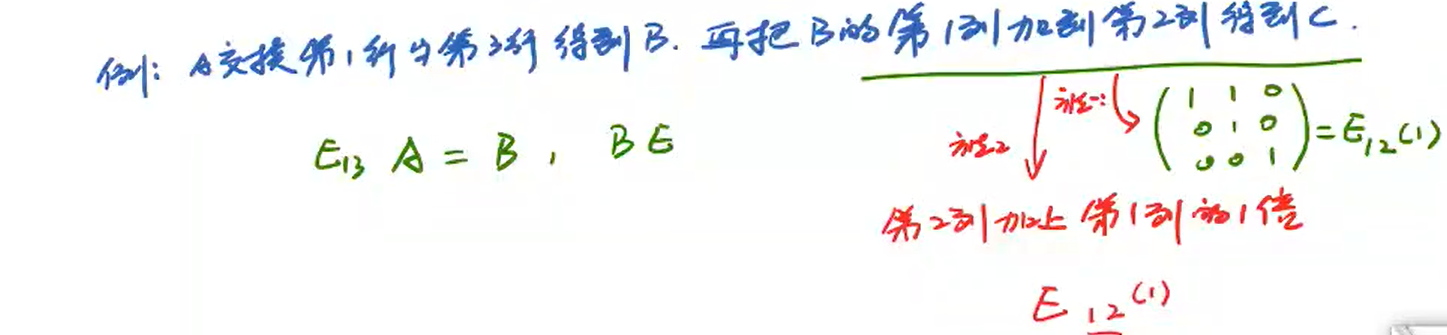 例: A交换第1行与第3行得到B. 再把B的第1列加到第2列得到C.
E₁₃ A = B , B E
方法一:
方法2
( 1 1 0
0 1 0
0 0 1 ) = E₁₂(1)
第2列加上第1列的1倍
E ₁₂(1)